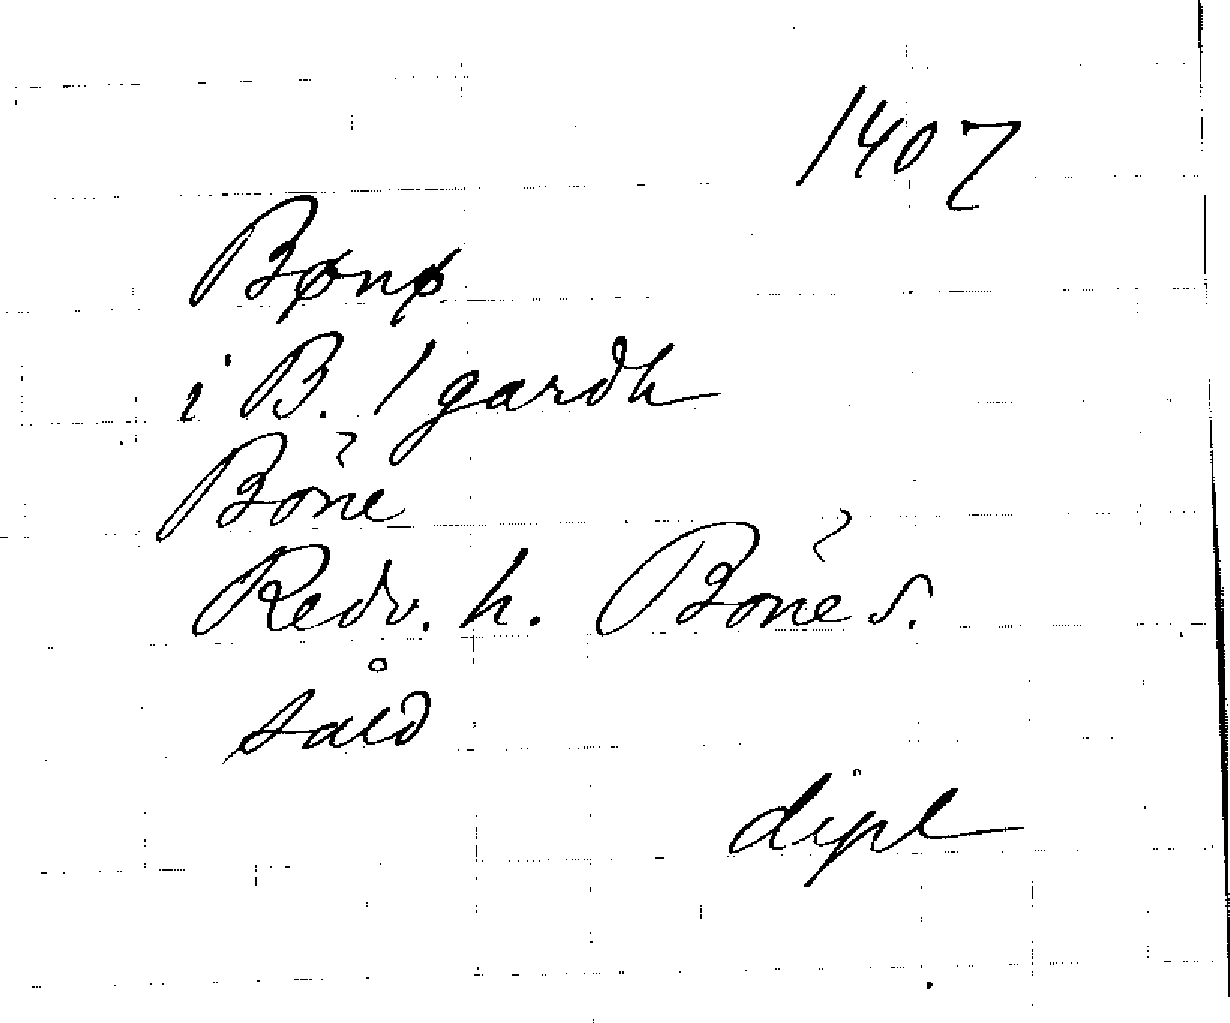 1407
Bønø
i B. 1 gardh
Böne
Redv. h. Böne s.
såld
dipl